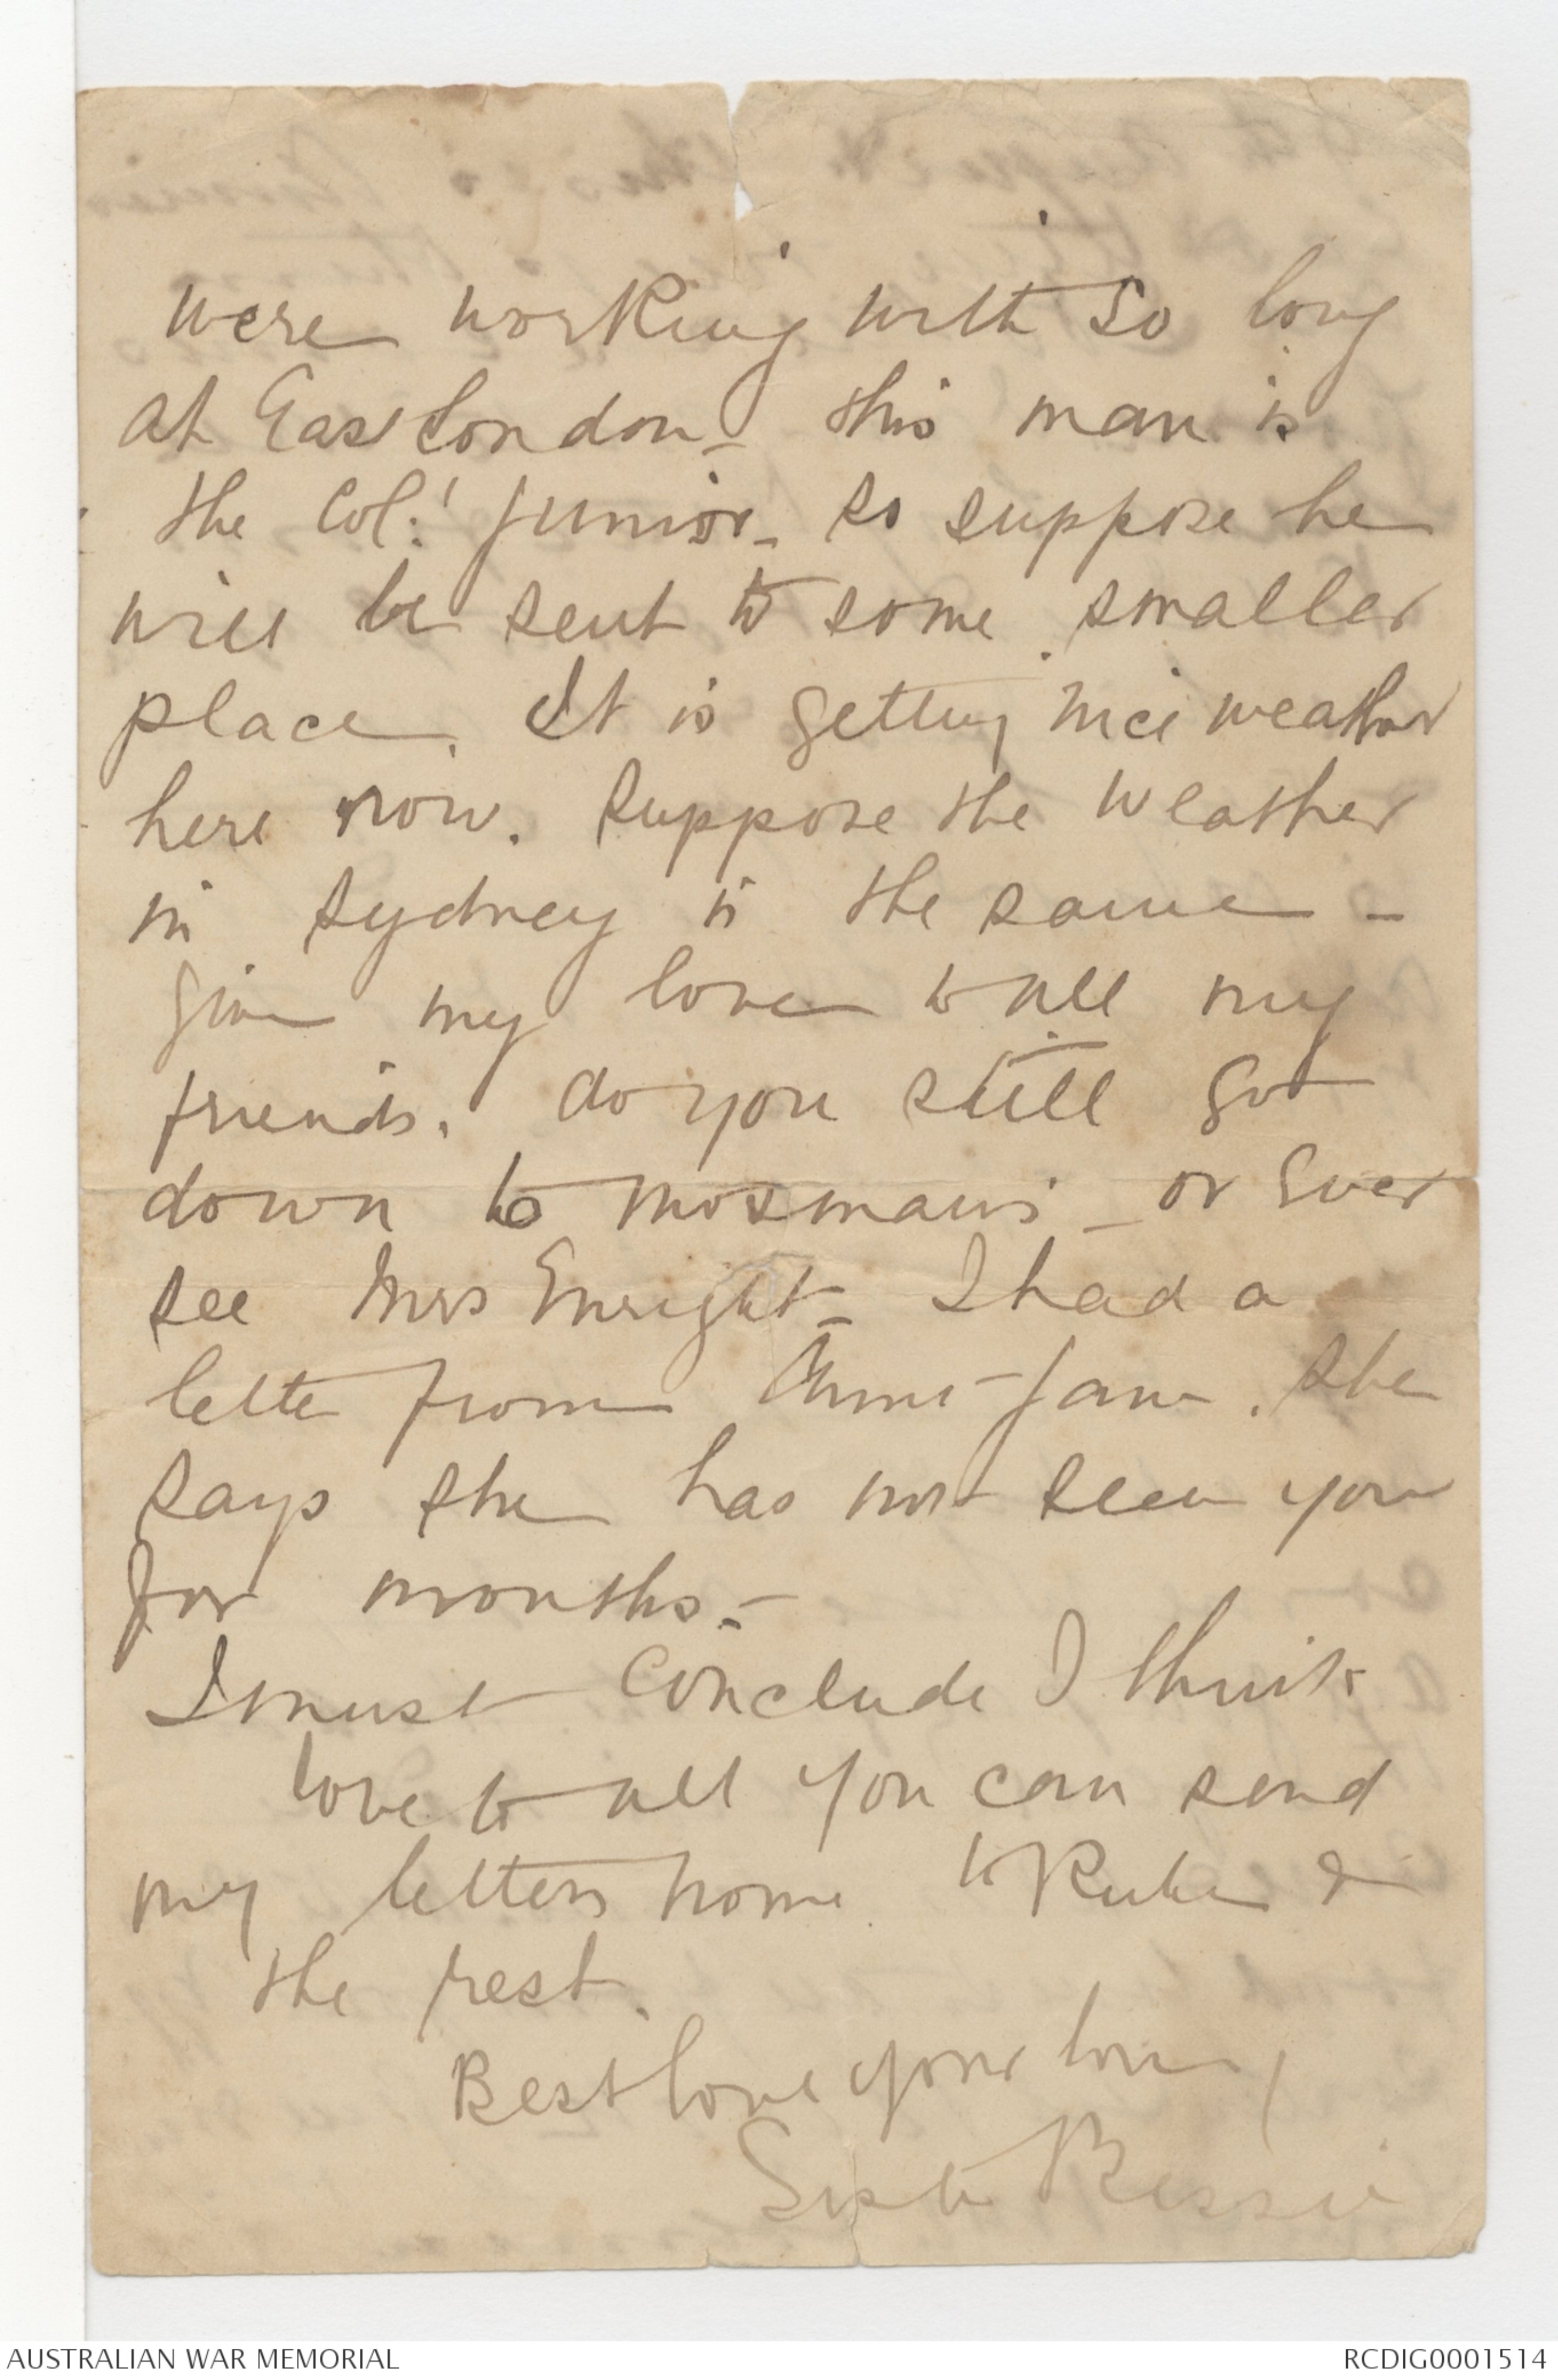 were working with so long
at East London _ this man is
the Col:' junior _ so suppose he
will be sent to some smaller
place. It is getting nice weather
here now. Suppose the weather
in Sydney is the same _
give my love to all my
friends. do you still go
down to Mosmans _ or ever
see Mrs Enright _ I had a
letter from Jane. She
says she has not seen you
for months. _
I must conclude I think
love to all you can send
my letters home to &
the rest.
Best love your lov
Sister Bessie
AUSTRALIAN WAR MEMORIAL
RCDIG0001514